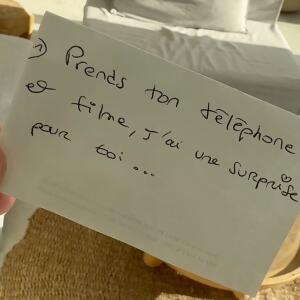 1) Prends ton téléphone
et filme, j'ai une surprise
pour toi...